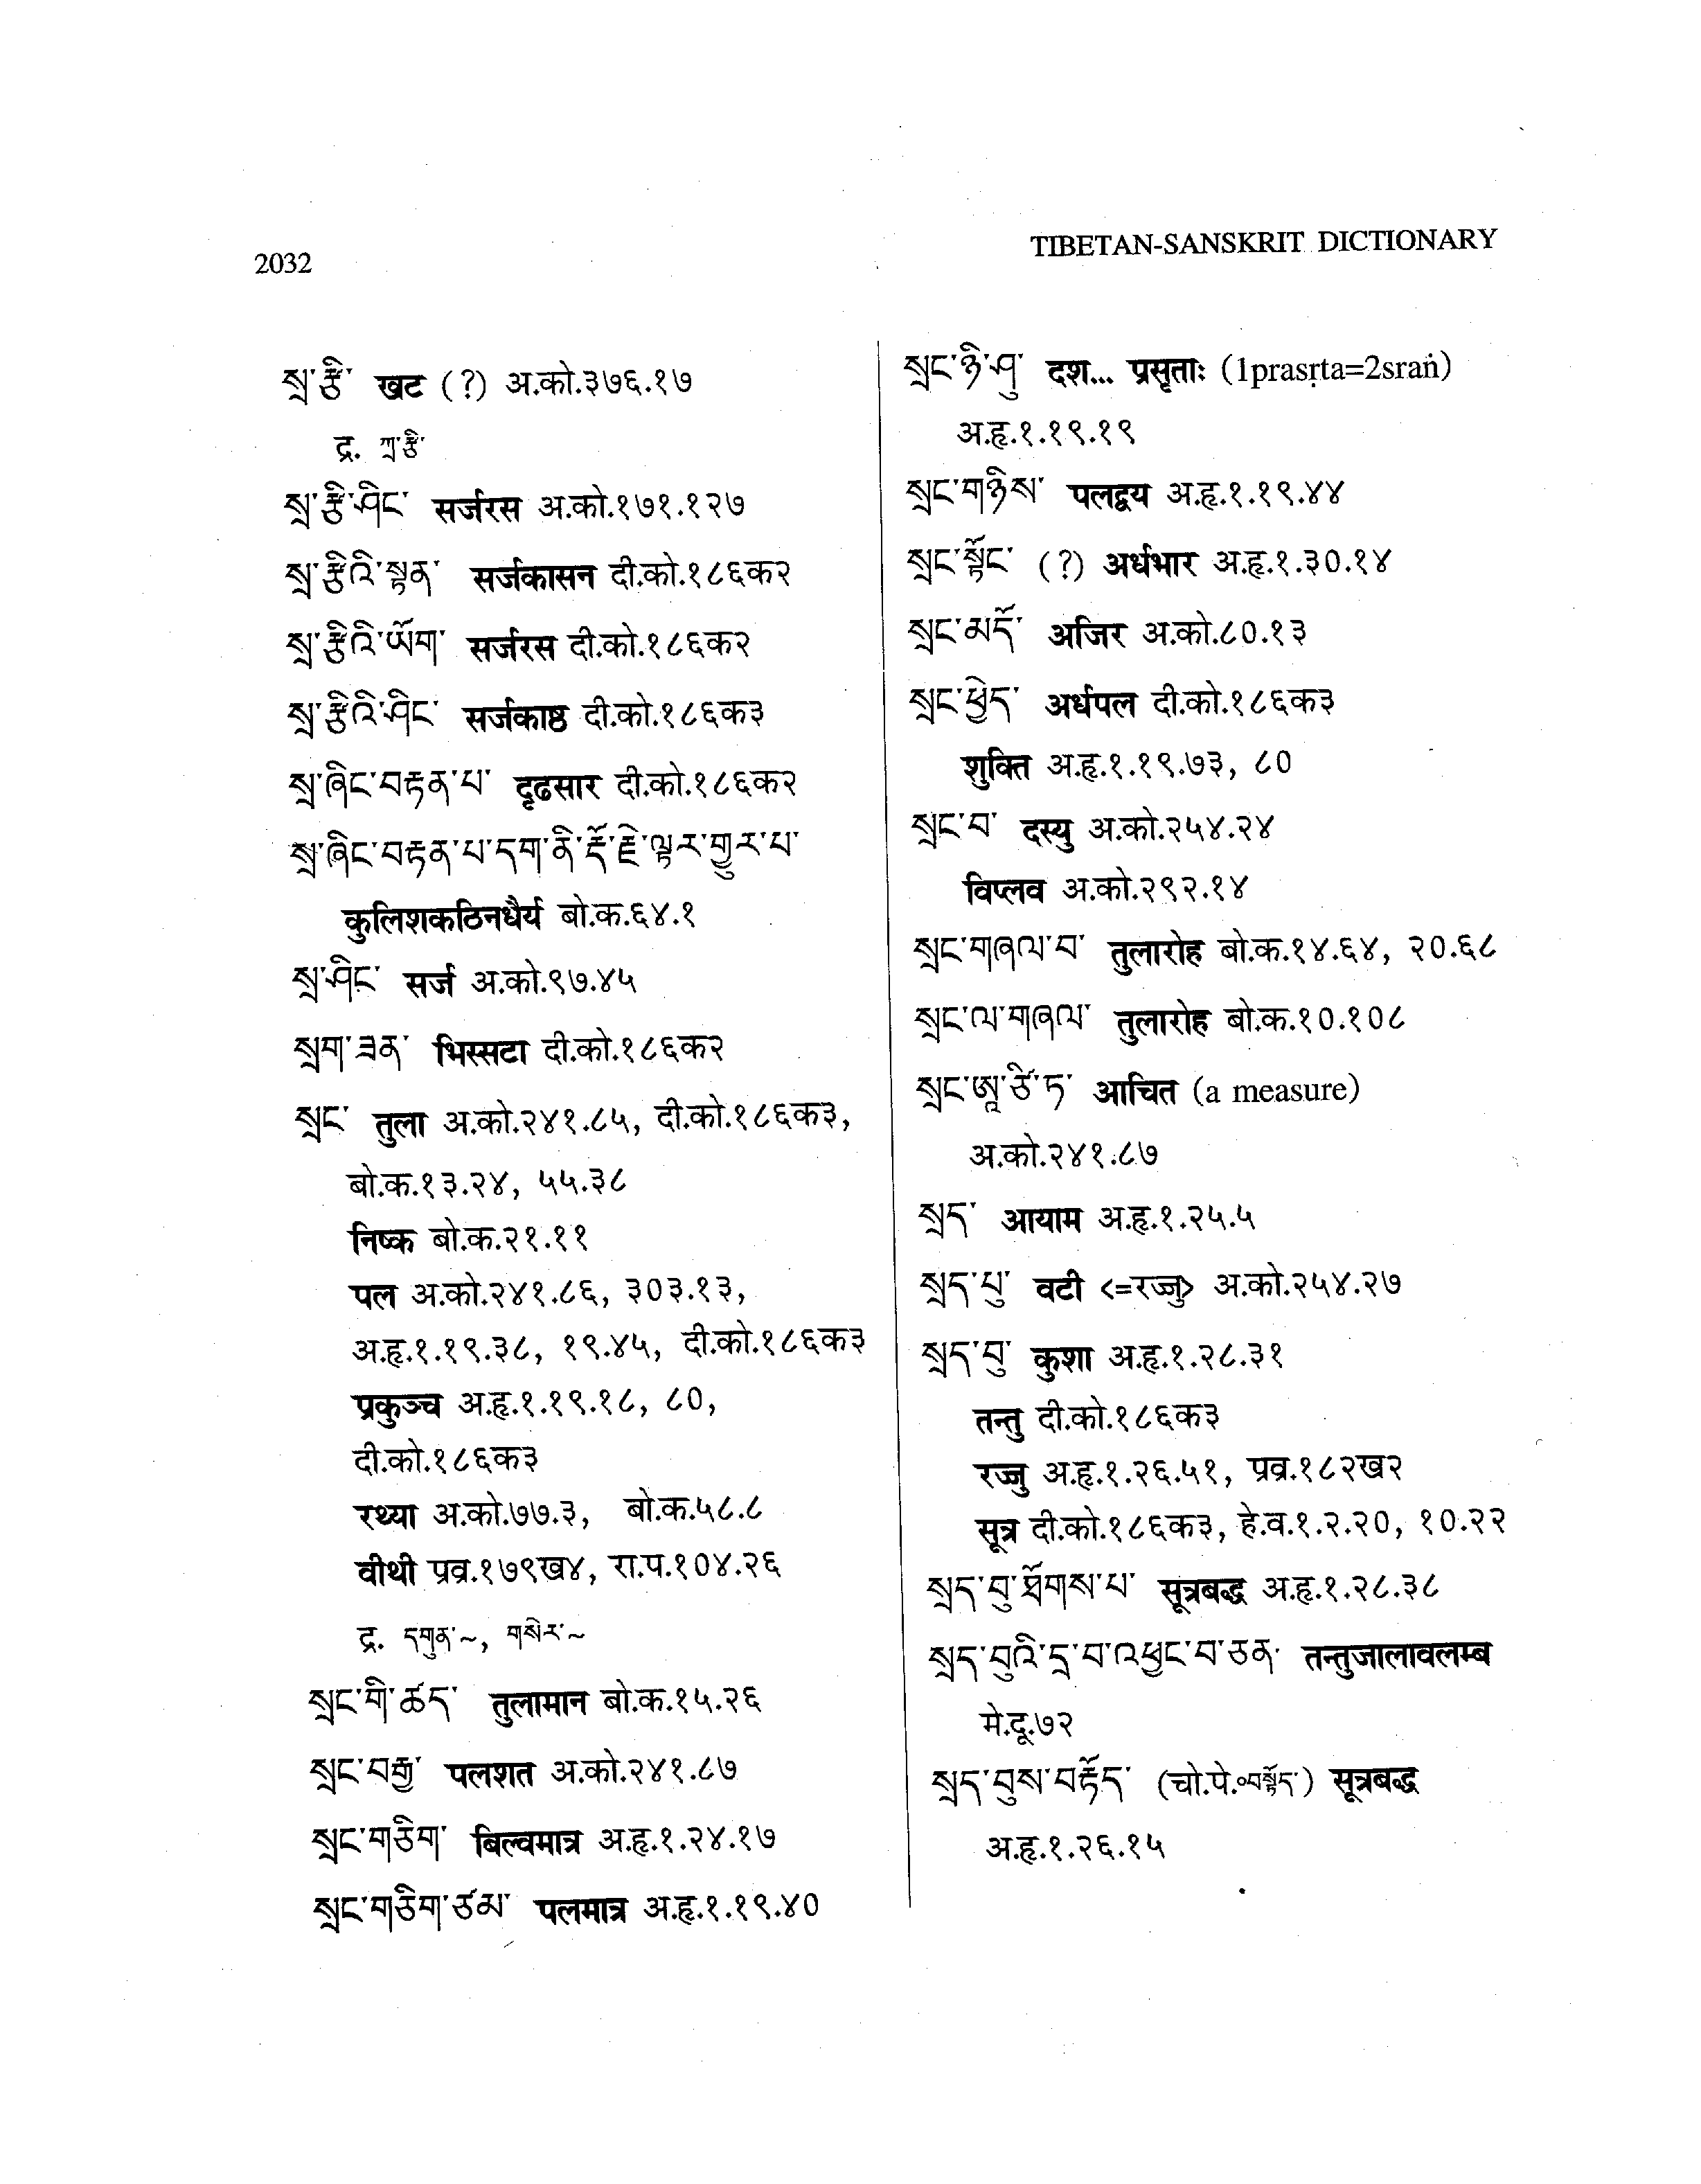 2032
TIBETAN-SANSKRIT DICTIONARY
སྲ་རྩི་ खट (?) अ.को.३७६.१७
द्र. ཀྲ་རྩི་
སྲ་རྩི་ཤིང་ सर्जरस अ.को.१७१.१२७
སྲ་རྩིའི་སྟན་ सर्जकासन दी.को.१८६क२
སྲ་རྩིའི་ཡོག་ सर्जरस दी.को.१८६क२
སྲ་རྩིའི་ཤིང་ सर्जकाष्ठ दी.को.१८६क३
སྲ་ཞིང་བརྟན་པ་ दृढसार दी.को.१८६क२
སྲ་ཞིང་བརྟན་པ་དག་ནི་རྡོ་རྗེ་ལྟར་གྱུར་པ་
कुलिशकठिनधैर्य बो.क.६४.१
སྲ་ཤིང་ सर्ज अ.को.९७.४५
སྲག་ཟན་ भिस्सटा दी.को.१८६क२
སྲང་ तुला अ.को.२४१.८५, दी.को.१८६क३,
बो.क.१३.२४, ५५.३८
निष्क बो.क.२१.११
पल अ.को.२४१.८६, ३०३.१३,
अ.हृ.१.१९.३८, १९.४५, दी.को.१८६क३
प्रकुञ्च अ.हृ.१.१९.१८, ८०,
दी.को.१८६क३
रथ्या अ.को.७७.३, बो.क.५८.८
वीथी प्रव्र.१७९ख४, रा.प.१०४.२६
द्र. དགུན་~, གསེར་~
སྲང་གི་ཚད་ तुलामान बो.क.१५.२६
སྲང་བརྒྱ་ पलशत अ.को.२४१.८७
སྲང་གཅིག་ बिल्वमात्र अ.हृ.१.२४.१७
སྲང་གཅིག་ཙམ་ पलमात्र अ.हृ.१.१९.४०
སྲང་ཉི་ཤུ་ दश... प्रसृताः (1prasṛta=2sraṅ)
अ.हृ.१.१९.१९
སྲང་གཉིས་ पलद्वय अ.हृ.१.१९.४४
སྲང་སྟོང་ (?) अर्धभार अ.हृ.१.३०.१४
སྲང་མདོ་ अजिर अ.को.८०.१३
སྲང་ཕྱེད་ अर्धपल दी.को.१८६क३
शुक्ति अ.हृ.१.१९.७३, ८०
སྲང་བ་ दस्यु अ.को.२५४.२४
विप्लव अ.को.२९२.१४
སྲང་གཞལ་བ་ तुलारोह बो.क.१४.६४, २०.६८
སྲང་ལ་གཞལ་ तुलारोह बो.क.१०.१०८
སྲང་ཨཱ་ཙི་ཏ་ आचित (a measure)
अ.को.२४१.८७
སྲད་ आयाम अ.हृ.१.२५.५
སྲད་པུ་ वटी <=रज्जु> अ.को.२५४.२७
སྲད་བུ་ कुशा अ.हृ.१.२८.३१
तन्तु दी.को.१८६क३
रज्जु अ.हृ.१.२६.५१, प्रव्र.१८२ख२
सूत्र दी.को.१८६क३, हे.व.१.२.२०, १०.२२
སྲད་བུ་ཐོགས་པ་ सूत्रबद्ध अ.हृ.१.२८.३८
སྲད་བུའི་དྲ་བ་འཕྱང་བ་ཅན་ तन्तुजालावलम्ब
मे.दू.७२
སྲད་བུས་བརྟོད་ (चो.पे.॰བསྟོད་) सूत्रबद्ध
अ.हृ.१.२६.१५